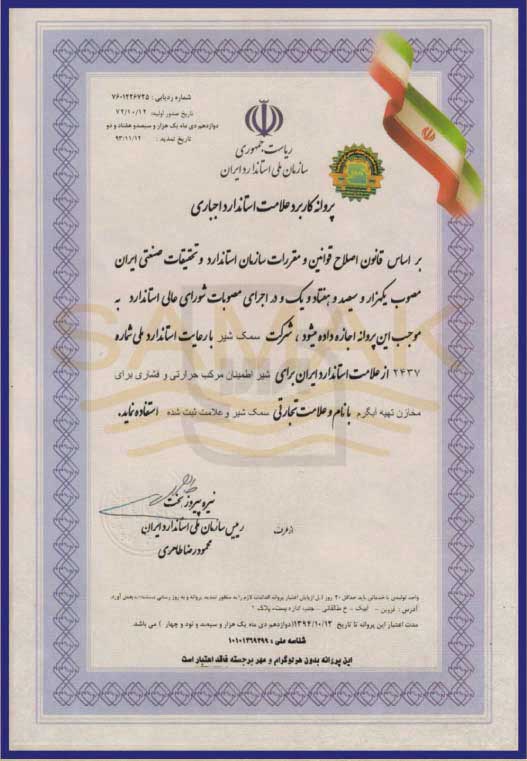 شماره ردیابی : ۷۶۰۱۲۲۶۷۲۵
تاریخ صدور اولیه: ۷۲/۱۰/۱۲
دوازدهم دی ماه یک هزار و سیصد و هفتاد و دو
تاریخ تمدید : ۹۳/۱۱/۱۲
ریاست جمهوری
سازمان ملی استاندارد ایران
پروانه کاربرد علامت استاندارد اجباری
بر اساس قانون اصلاح قوانین و مقررات سازمان استاندارد و تحقیقات صنعتی ایران
مصوب یکهزار و سیصد و هفتاد و یک و در اجرای مصوبات شورای عالی استاندارد به
موجب این پروانه اجازه داده میشود ، شرکت سمک شیر با رعایت استاندارد ملی شماره
۲۴۳۷ از علامت استاندارد ایران برای شیر اطمینان مرکب حرارتی و فشاری برای
مخازن تهیه آبگرم با نام و علامت تجارتی سمک شیر و علامت ثبت شده استفاده نماید.
SAMAK
نیره پیروزبخت
رییس سازمان ملی استاندارد ایران
از طرف
محمودرضا طاهری
واحد تولیدی یا خدماتی باید حداقل ۳۰ روز قبل از پایان اعتبار پروانه اقدامات لازم را به منظور تمدید پروانه و به روز رسانی مستندات به عمل آورد.
آدرس : قزوین - آبیک - خ طالقانی - جنب اداره پست، پلاک ۲
مدت اعتبار این پروانه تا تاریخ ۱۳۹۴/۱۰/۱۲ (دوازدهم دی ماه یک هزار و سیصد و نود و چهار ) می باشد.
شناسه ملی : ۱۰۱۰۱۳۶۹۴۹۹
این پروانه بدون هولوگرام و مهر برجسته فاقد اعتبار است